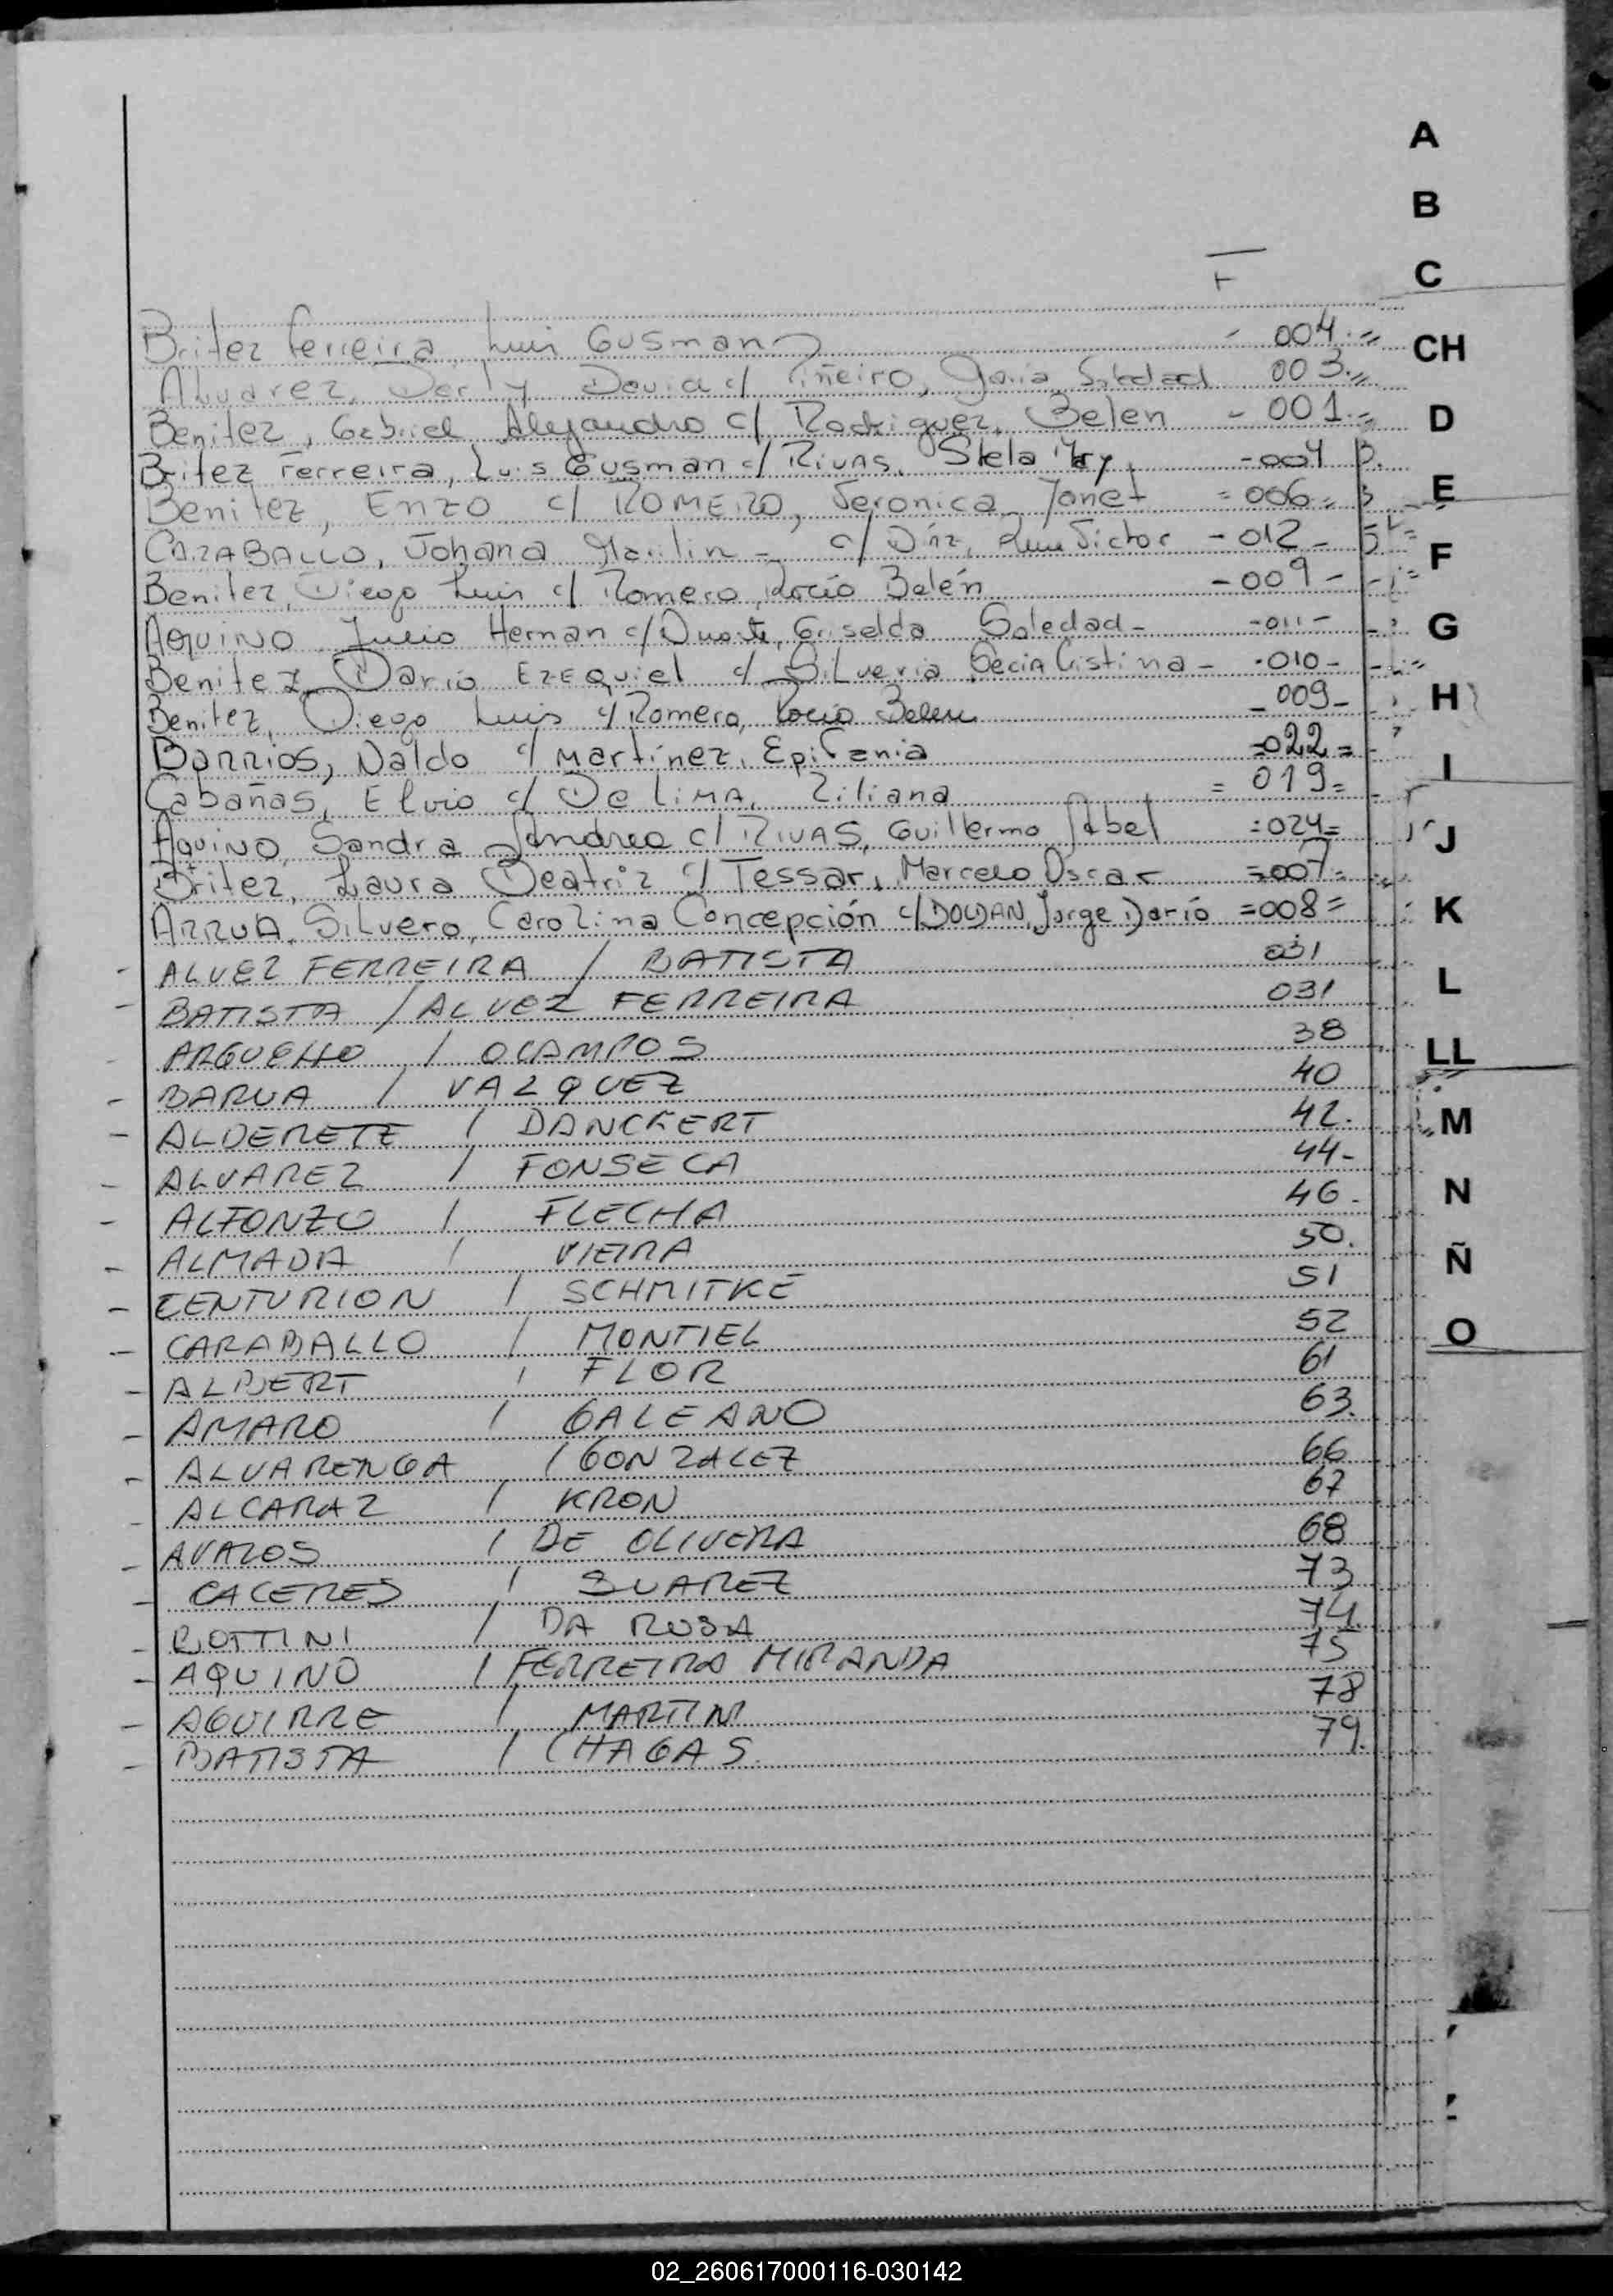 A
B
C
CH
D
E
F
G
H
I
J
K
L
LL
M
N
Ñ
O
F
Britez Ferreira, Luis Gusman - 004.=
Alvarez, Derly David c/ Piñeiro, Soledad 003.=
Benitez, Gabriel Alejandro c/ Rodriguez, Belen - 001.=
Britez Ferreira, Luis Gusman c/ RIVAS, Stela Mary -004
Benitez, Enzo c/ ROMERO, Veronica Janet = 006=
CARABALLO, Johana Marilin - c/ Díaz, Víctor - 012 -
Benitez, Diego Luis c/ Romero, Rocío Belén - 009 -
AQUINO Julio Hernan c/ Duarte, Griselda Soledad - -011-
Benitez, Dario EZEQuiel c/ SiLveria - -010-
Benitez, Diego Luis c/ Romero, Rocio Belen - 009-
BARRIOS, Naldo c/ Martínez, Epifania =022=
Cabañas, Elvio c/ De LIMA, Liliana = 019=
AQuINO, Sandra Andrea c/ RIVAS, Guillermo Abel =024=
Britez, Laura Beatriz c/ Tessar, Marcelo Oscar =007=
ARRUA, SiLvero, Carolina Concepción c/ DOLDAN, Jorge Darío =008=
- ALVEZ FERREIRA / BATISTA 031
- BATISTA / ALVEZ FERREIRA 031
- ARGUELLO / OCAMPOS 38
- BARUA / VAZQUEZ 40
- ALDERETE / DANCKERT 42.
- ALVAREZ / FONSECA 44-
- ALFONZO / FLECHA 46.
- ALMADA / VIEIRA 50.
- CENTURION / SCHMITKE 51
- CARABALLO / MONTIEL 52
- ALBERT / FLOR 61
- AMARO / GALEANO 63.
- ALVARENGA / GONZALEZ 66
- ALCARAZ / KRON 67
- AVALOS / DE OLIVERA 68
- CACERES / SUAREZ 73
- BOTTINI / DA ROSA 74.
- AQUINO / FERREIRA MIRANDA 75
- AGUIRRE / MARTINI 78
- BATISTA / CHAGAS. 79.
02_260617000116-030142